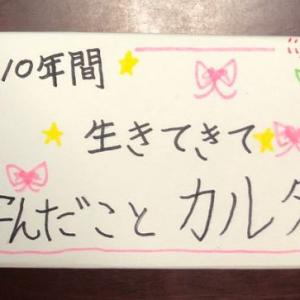 10年間
生きてきて
学んだこと カルタ